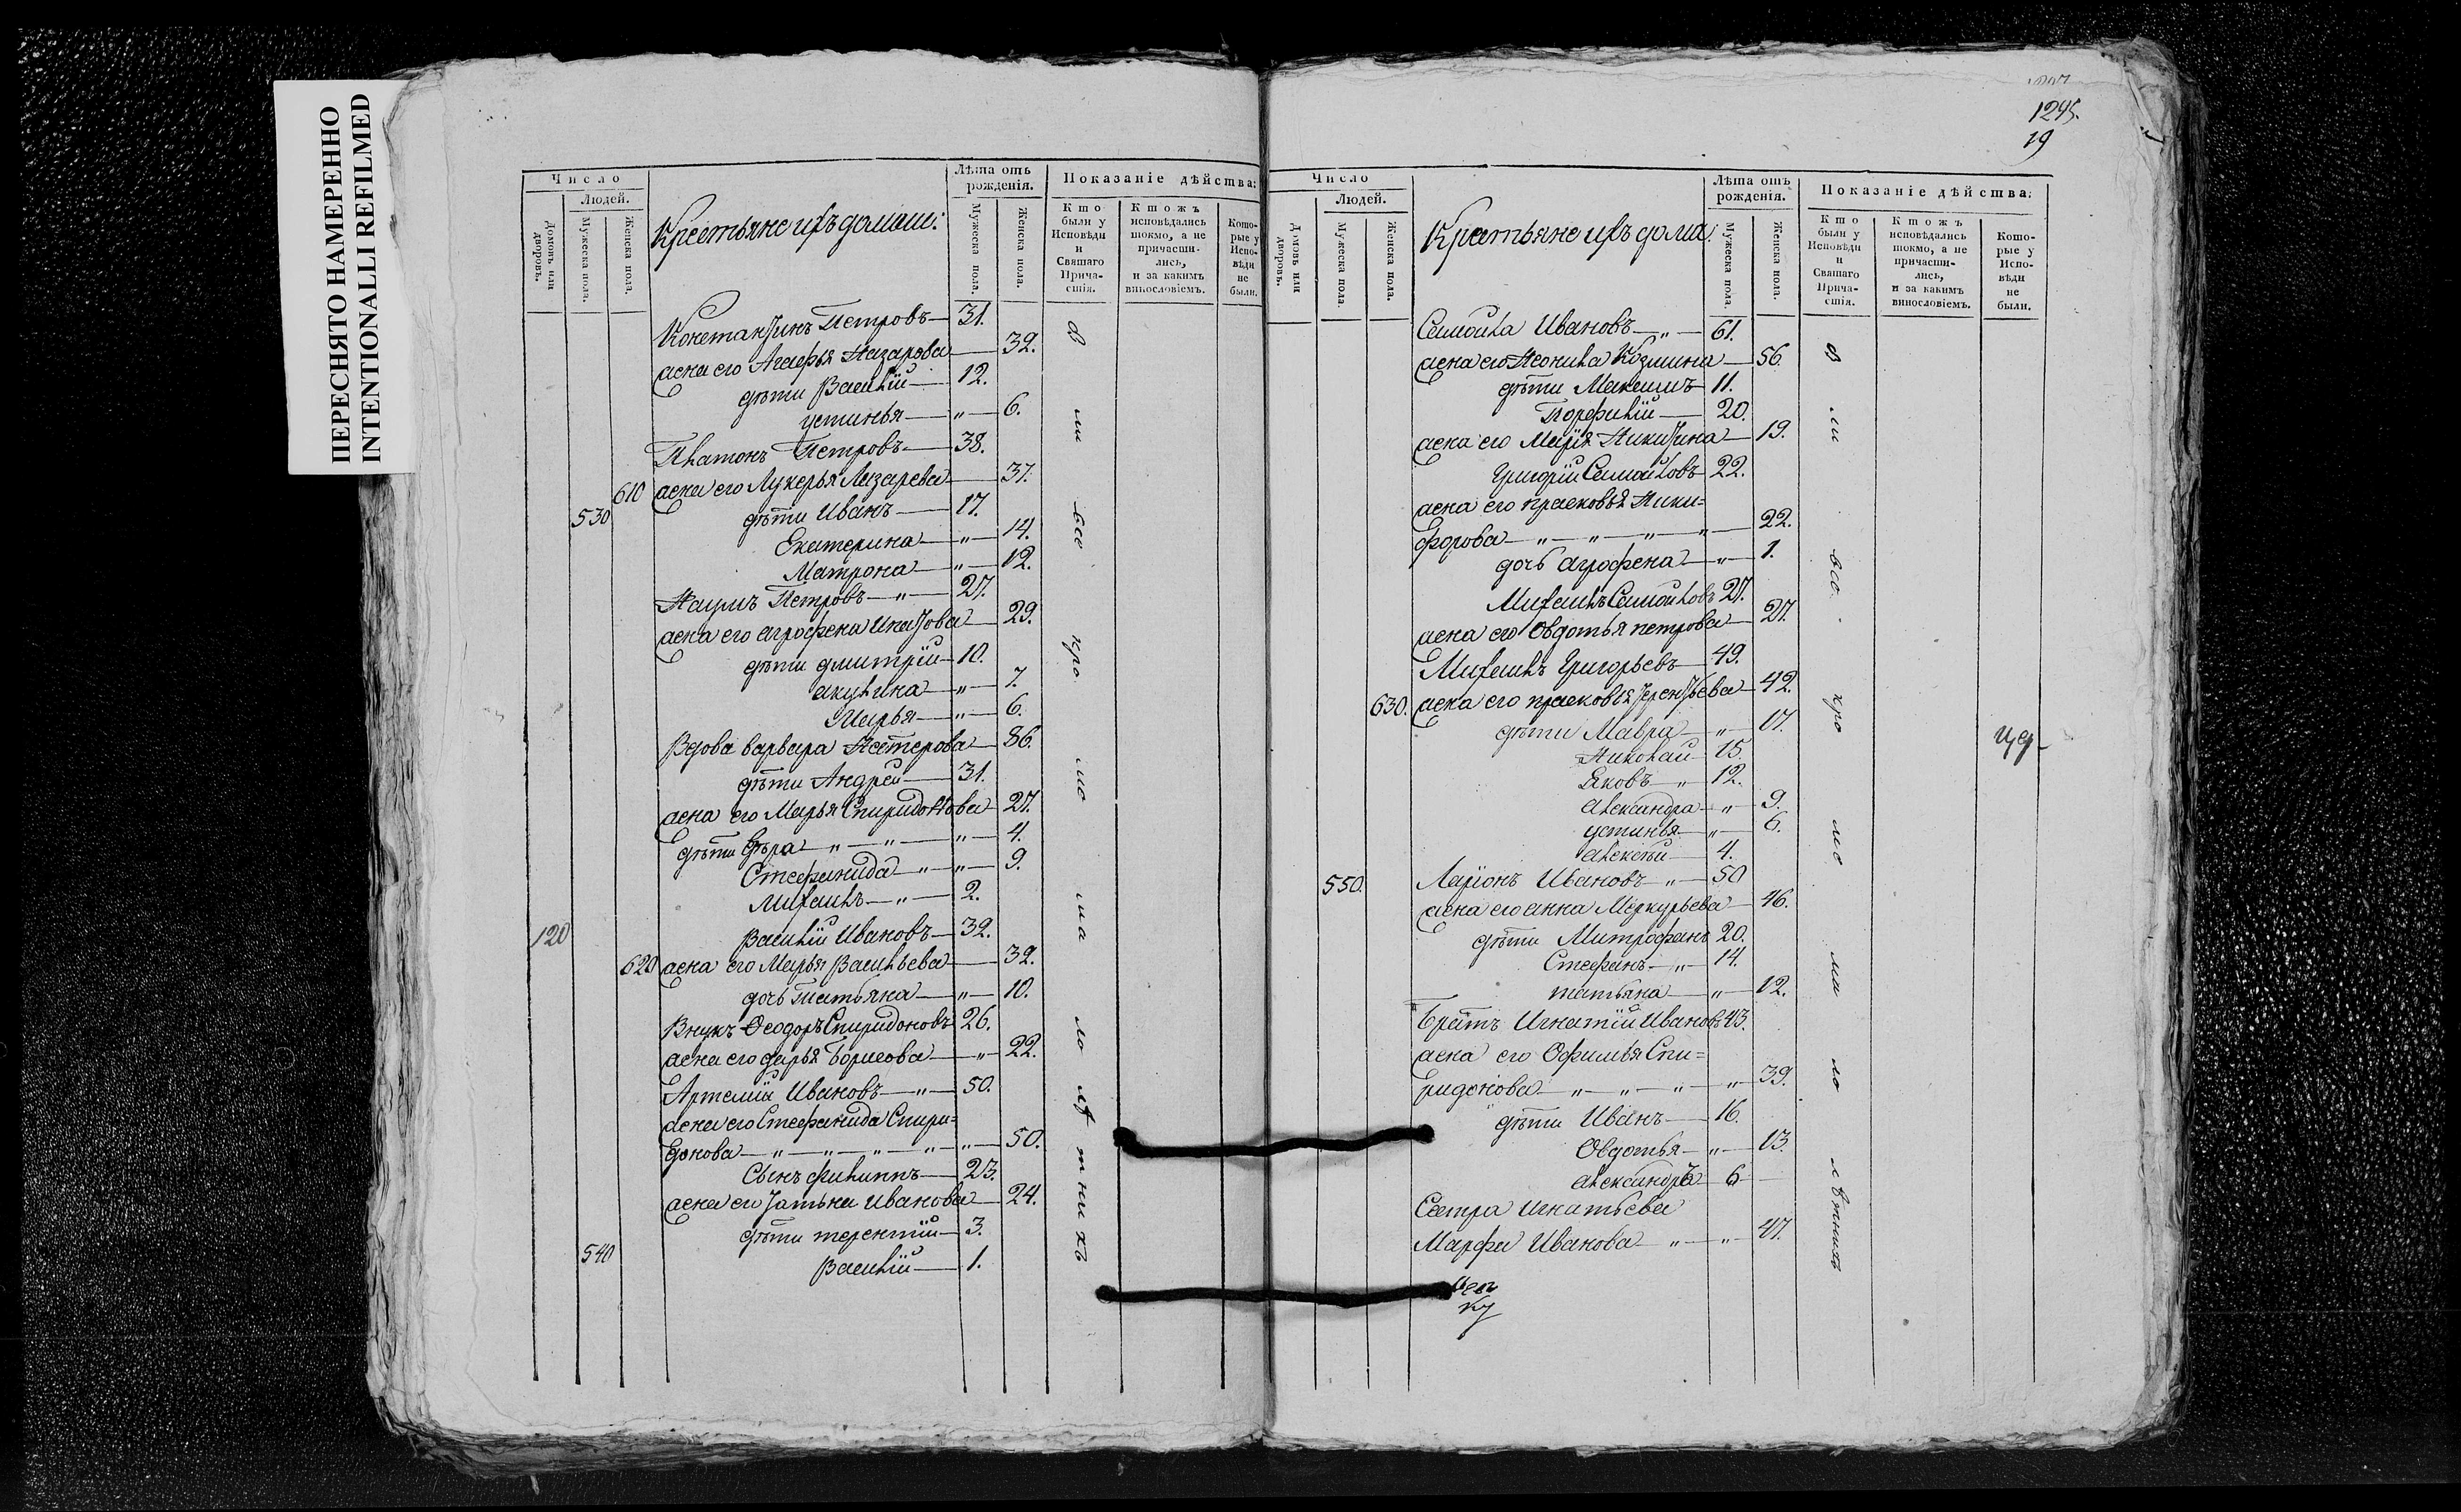 ПЕРЕСНЯТО НАМЕРЕННО
INTENTIONALLI REFILMED
Число
Людей.
Домовъ или дворовъ.
Мужеска пола.
Женска пола.
Крестьяне
Лѣта отъ рожденія.
Мужеска пола.
Женска пола.
Показаніе дѣйства:
Кто были у Исповѣди и Святаго Прича-стія.
Кто жъ исповѣдались токмо, а не причасти-лись, и за какимъ винословіемъ.
Кото-рые у Испо-вѣди не были.
Константинъ Петровъ 31.
жена его Агафья Назарова 32.
дѣти Василій 12.
устинья 6.
Платонъ Петровъ 38.
610 жена его Лукерья Лазарева 37.
530 дѣти Иванъ 17.
Екатерина 14.
Матрона 12.
Наумъ Петровъ 27.
жена его агрофена 29.
дѣти дмитрій 10.
акулина 7.
Марья 6.
Вдова варвара Нестерова 86.
дѣти Андрей 31.
жена его Марья Спиридонова 27.
дѣти 4.
Стефанида 9.
Михаилъ 2.
120 Василій Ивановъ 32.
620 жена его Марья Васильева 32.
дочь татьяна 10.
Внукъ Ѳеодоръ Спиридоновъ 26.
жена его дарья Борисова 22.
Артемій Ивановъ 50.
жена его Стефанида Спири=
донова 50.
Сынъ филиппъ 23.
жена его Иванова 24.
дѣти терентій 3.
540 Василій 1.
всѣ кро мѣ ма ло лѣ тнихъ
1245.
19
Число
Людей.
Домовъ или дворовъ.
Мужеска пола.
Женска пола.
Лѣта отъ рожденія.
Мужеска пола.
Женска пола.
Показаніе дѣйства:
Кто были у Исповѣди и Святаго Прича-стія.
Кто жъ исповѣдались токмо, а не причасти-лись, и за какимъ винословіемъ.
Кото-рые у Испо-вѣди не были.
Самойла Ивановъ 61.
жена его Леонила Козмина 56.
дѣти Максимъ 11.
Порфилій 20.
жена его Марія Никитина 19.
Григорій Самойловъ 22.
жена его прасковья Ники=
форова 22.
дочь агрофена 1.
Михаилъ Самойловъ 27.
жена его Овдотья петрова 27.
Михаилъ Григорьевъ 49.
630. жена его прасковья терентьева 42.
дѣти Мавра 17.
Николай 15.
Яковъ 12.
александра 9.
устинья 6.
алексѣй 4.
550. Ларіонъ Ивановъ 50
жена его анна Меркурьева 46.
дѣти Митрофанъ 20.
Стефанъ 14.
татьяна 12.
Братъ Игнатій Ивановъ 43.
жена его Офимья Спи=
ридонова 39.
дѣти Иванъ 16.
Овдотья 13.
александръ 6
Сестра игнатьева
Марфа Иванова 47.